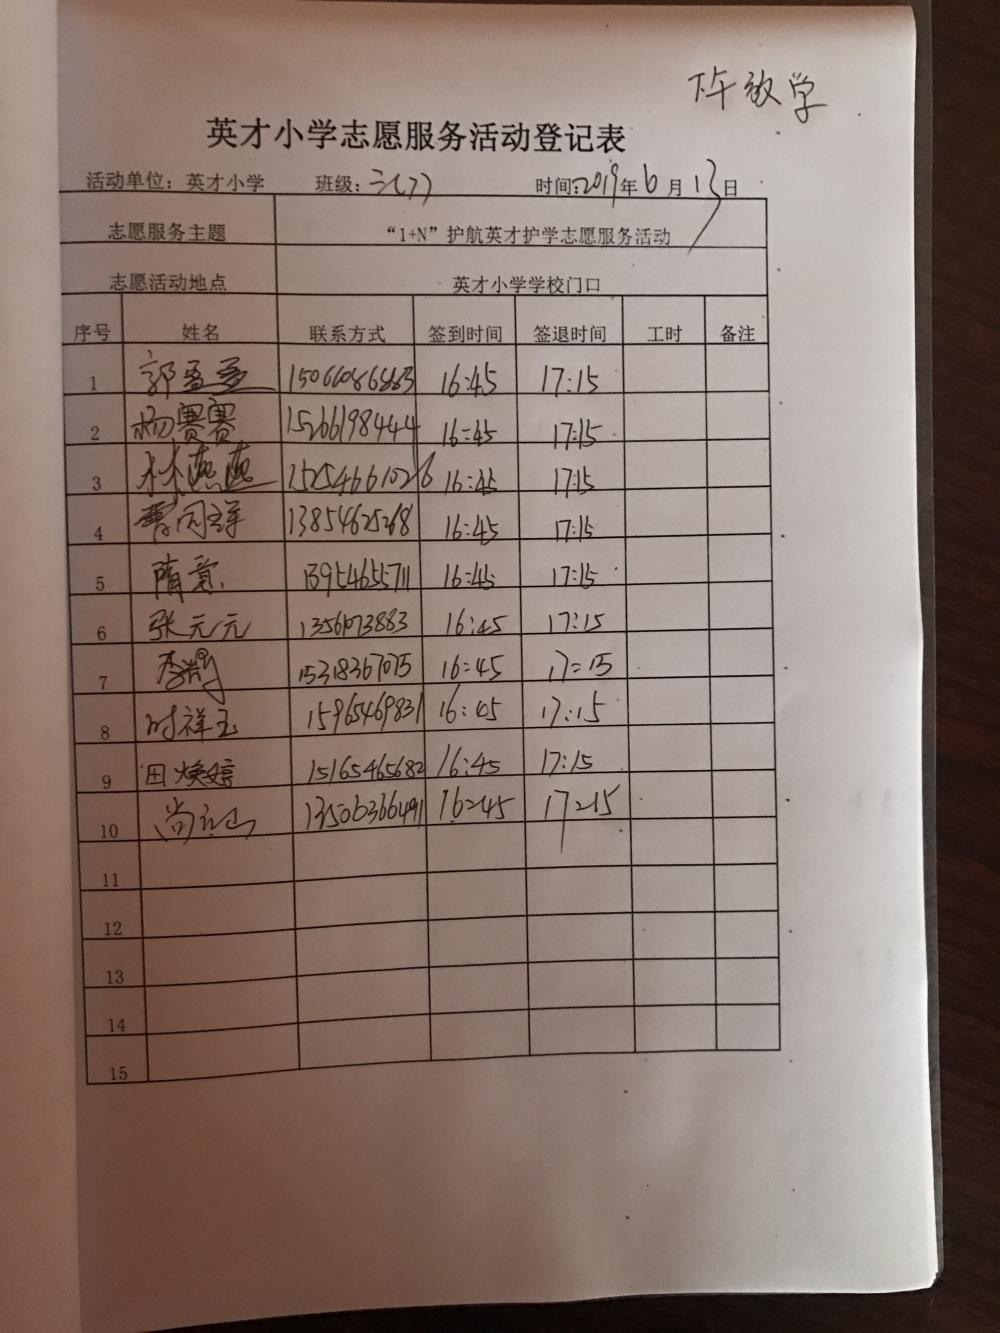 下午放学
英才小学志愿服务活动登记表
活动单位：英才小学 班级： 时间：2019年6月13日
志愿服务主题 “1+N”护航英才护学志愿服务活动
志愿活动地点 英才小学学校门口
序号 姓名 联系方式 签到时间 签退时间 工时 备注
1 郭盈盈 15066086863 16:45 17:15
2 杨赛赛 15266198444 16:45 17:15
3 林燕燕 15254661026 16:45 17:15
4 13854625268 16:45 17:15
5 隋 13954655711 16:45 17:15
6 张元元 1356073883 16:45 17:15
7 李 15318367075 16:45 17:15
8 时祥玉 15965469831 16:45 17:15
9 田焕婷 15165465682 16:45 17:15
10 尚 13506366491 16:45 17:15
11
12
13
14
15